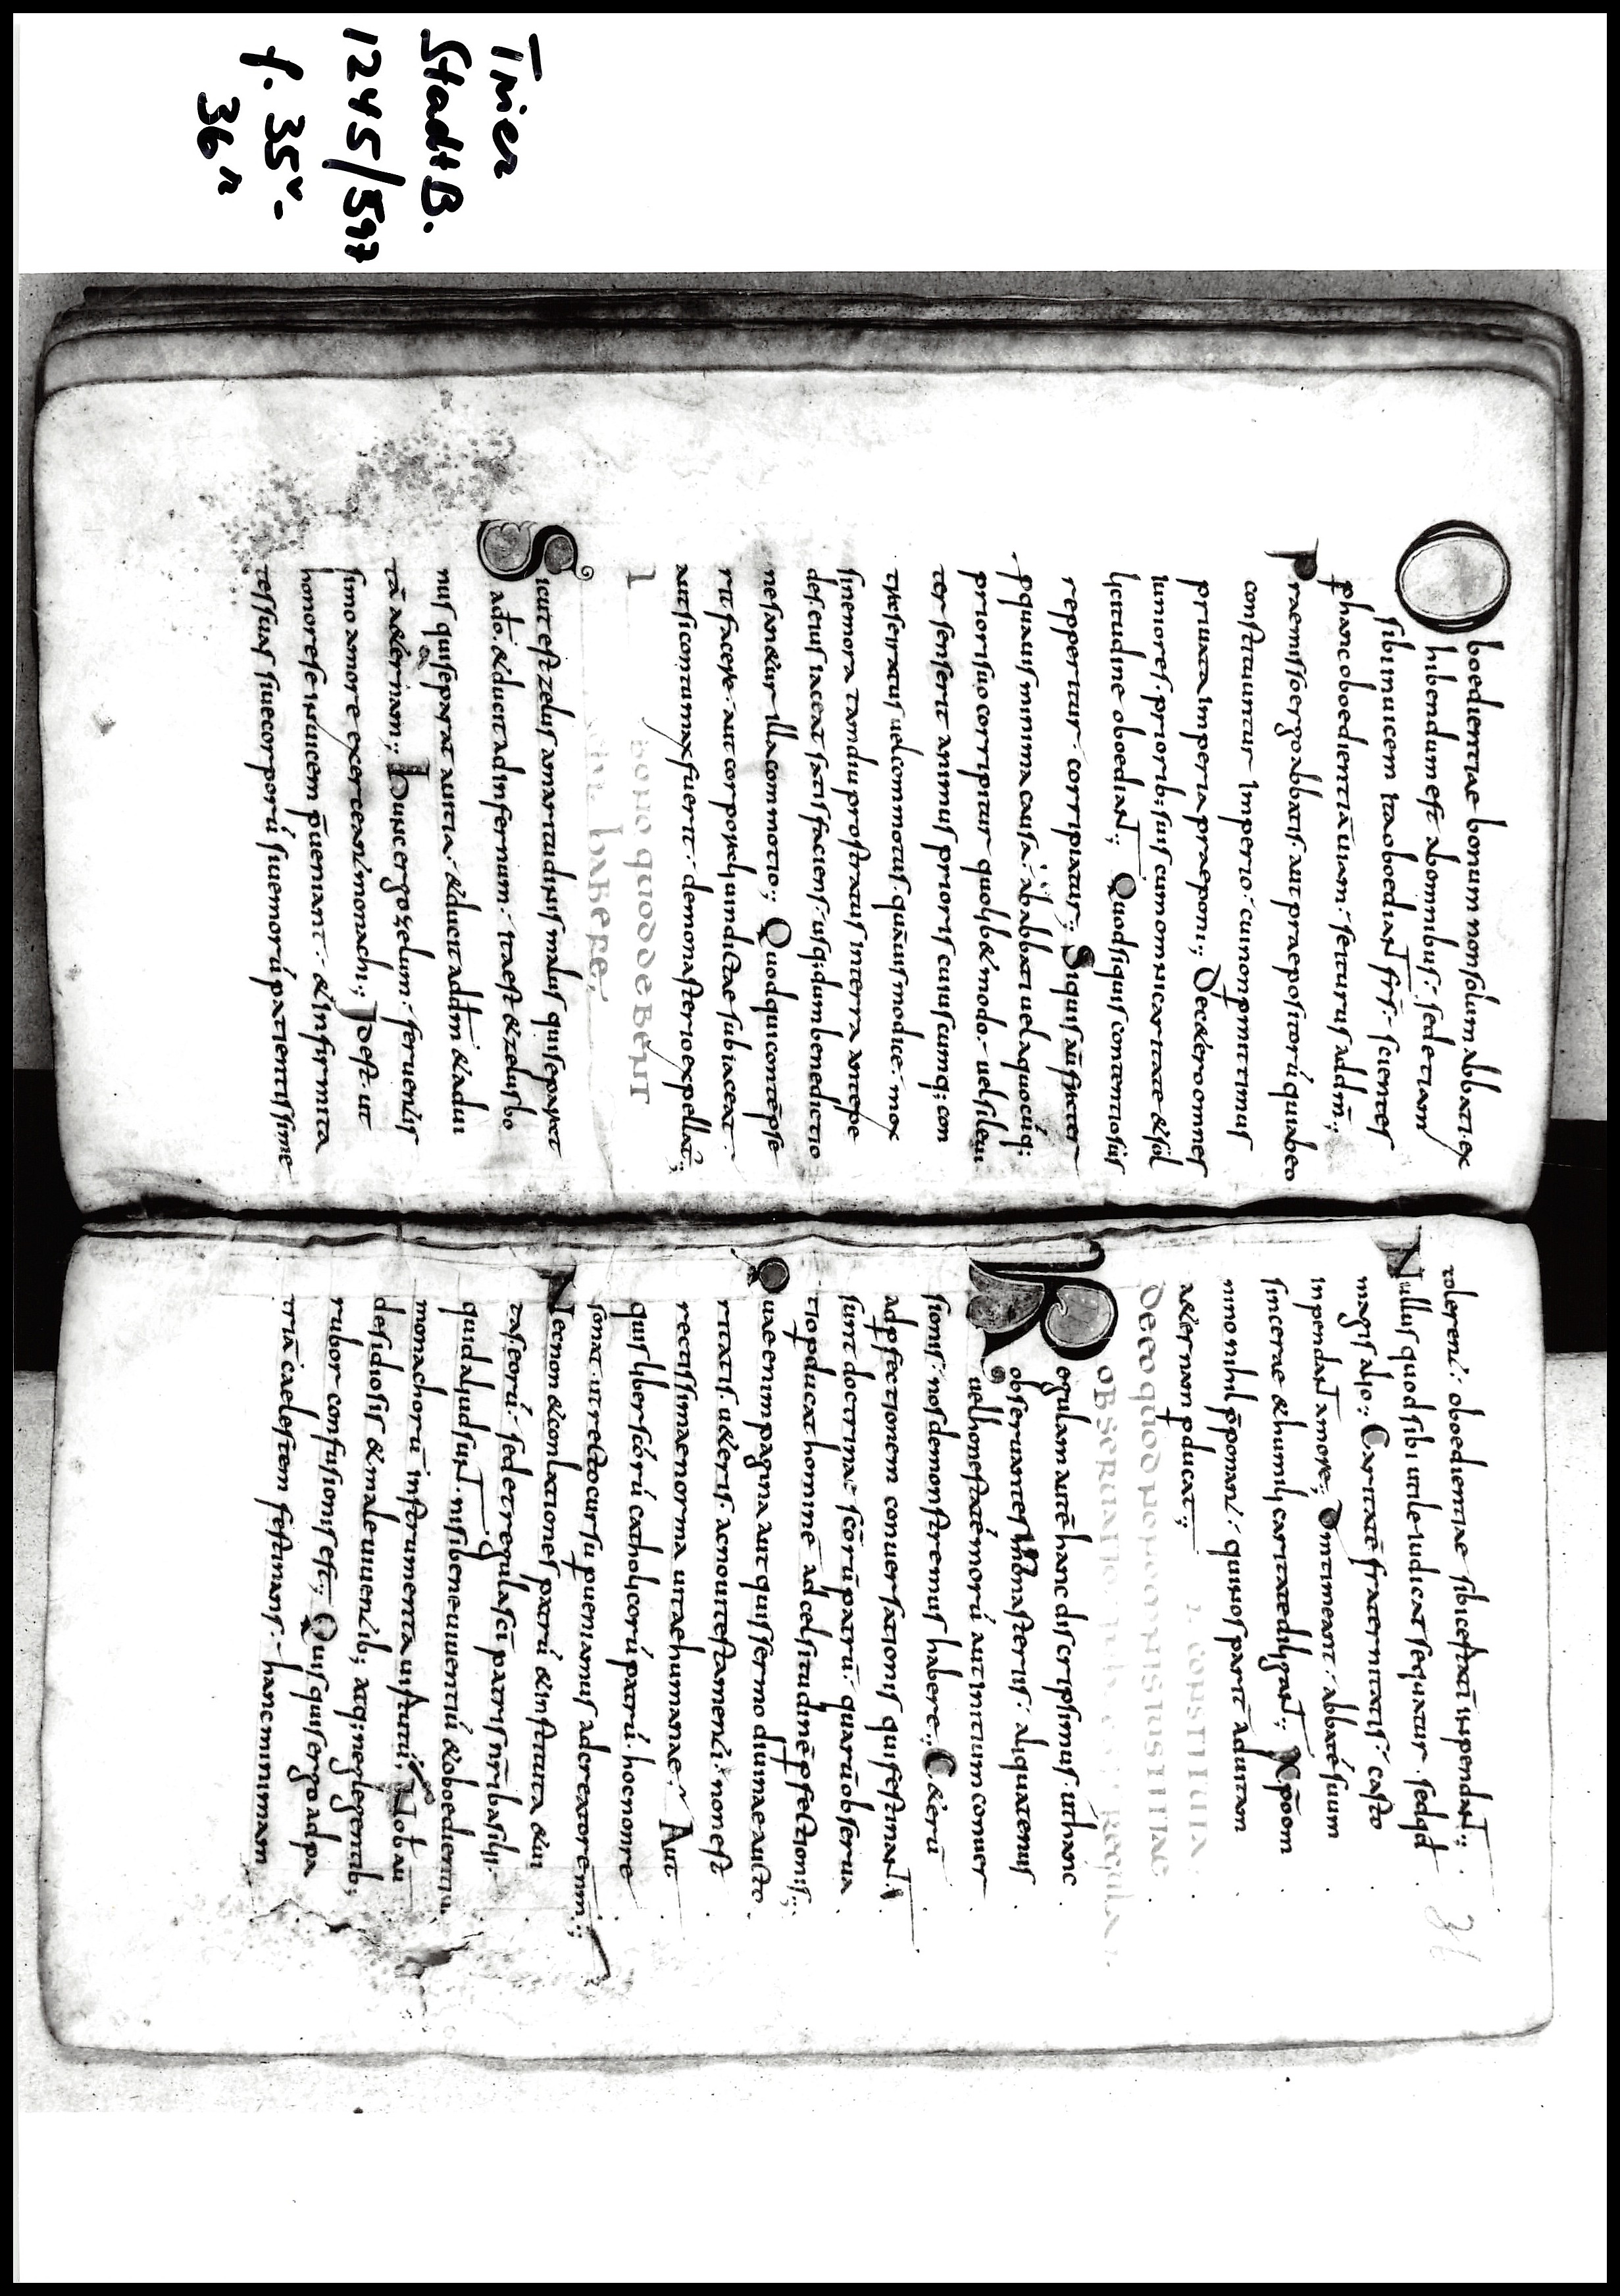 Trier
StadtB.
1245/597
f. 35v-
36r
Oboedientiae bonum non solum abbati ex
hibendum est ab omnibus; sed etiam
sibi inuicem ita oboediant frs; scientes
p hanc oboedientiā uiam; se ituros ad dm̄;
Praemisso ergo abbatis aut praepositorū qui ab eo
constituuntur imperio; cui non pmittimus
priuata imperia praeponi; De cetero omnes
iuniores prioribus suis cum omni caritate & sol
licitudine oboediant; Quod si quis contentiosus
repperitur corripiatur; Si quis aū frater
p quauis minima causa ab abbati uel a quocūq;
priori suo corripitur quolib& modo uel si leui
ter senserit animus prioris cuiuscumq; con
tra se iratus uel commotus quāuis modice mox
sine mora tamdiu prostratus in terra ante pe
des eius iaceat satisfaciens usq; dum benedictio
ne san&ur illa commotio; Quod qui contēpse
rit facere aut corporali uindictae subiaceat
aut si contumax fuerit demonasterio expellatᵘʳ;
bono quod debent
habere
Sicut est zelus amaritudinis malus qui separat
a dō & ducit ad infernum; ita est & zelus bo
nus qui separat a uitia & ducit ad dm̄ & ad ui
tā aeternam; Hunc ergo zelum feruentis
simo amore exerceant monachi; Id est ut
honore se inuicem pueniant & infirmita
tes suas siue corporū siue morū patientissime
36
tolerent; oboedientiae sibi certatī inpendant;
Nullus quod sibi utile iudicat sequatur sed qd
magis alio; Caritatē fraternitatis casto
inpendant amore; Dm̄ timeant; abbatē suum
sincerae & humili caritate diligant; Xpo om
nino nihil p̄ponant; qui nos pariter ad uitam
aeternam pducat;
De eo quod non omnis iustitiae
obseruatio in hac sit regula constituta
Regulam autē hanc discripsimus ut hanc
obseruantes in monasteriis aliquatenus
uel honestatē morū aut initium conuer
sionis nos demonstremus habere; Ceterū
ad pfectionem conuersationis qui festinant
sunt doctrinae sc̄orū patrū; quarū obserua
tio pducat hominē ad celsitudinē pfectionis;
Quae enim pagina aut qui sermo diuinae aucto
ritatis ueteris ac noui testamenti non est
rectissimae norma uitae humanae; Aut
quis liber sc̄orū catholicorū patrū hoc non re
sonat ut recto cursu pueniamus ad creatorē nr̄m;
Necnon & conlationes patrū & instituta & ui
tas eorū sed et regula sc̄i patris nr̄i basilii
quid aliud sunt nisi bene uiuentiū & oboedientiū
monachorū instrumenta uirtutū; Nob aū
desidiosis & male uiuentib; atq; neglegentib;
rubor confusionis est; Quisquis ergo ad pa
triā caelestem festinans hanc minimam